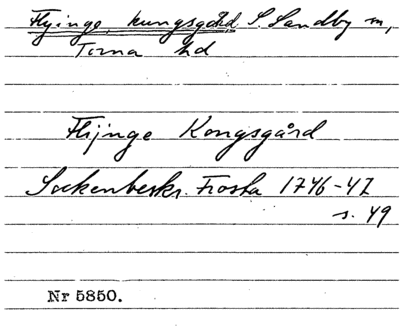 Flyinge, kungsgård S. Sandby sn,
Torna hd
Flijnge Kongsgård
Sockenbeskr. Frosta 1746-47
s. 49
Nr 5850.